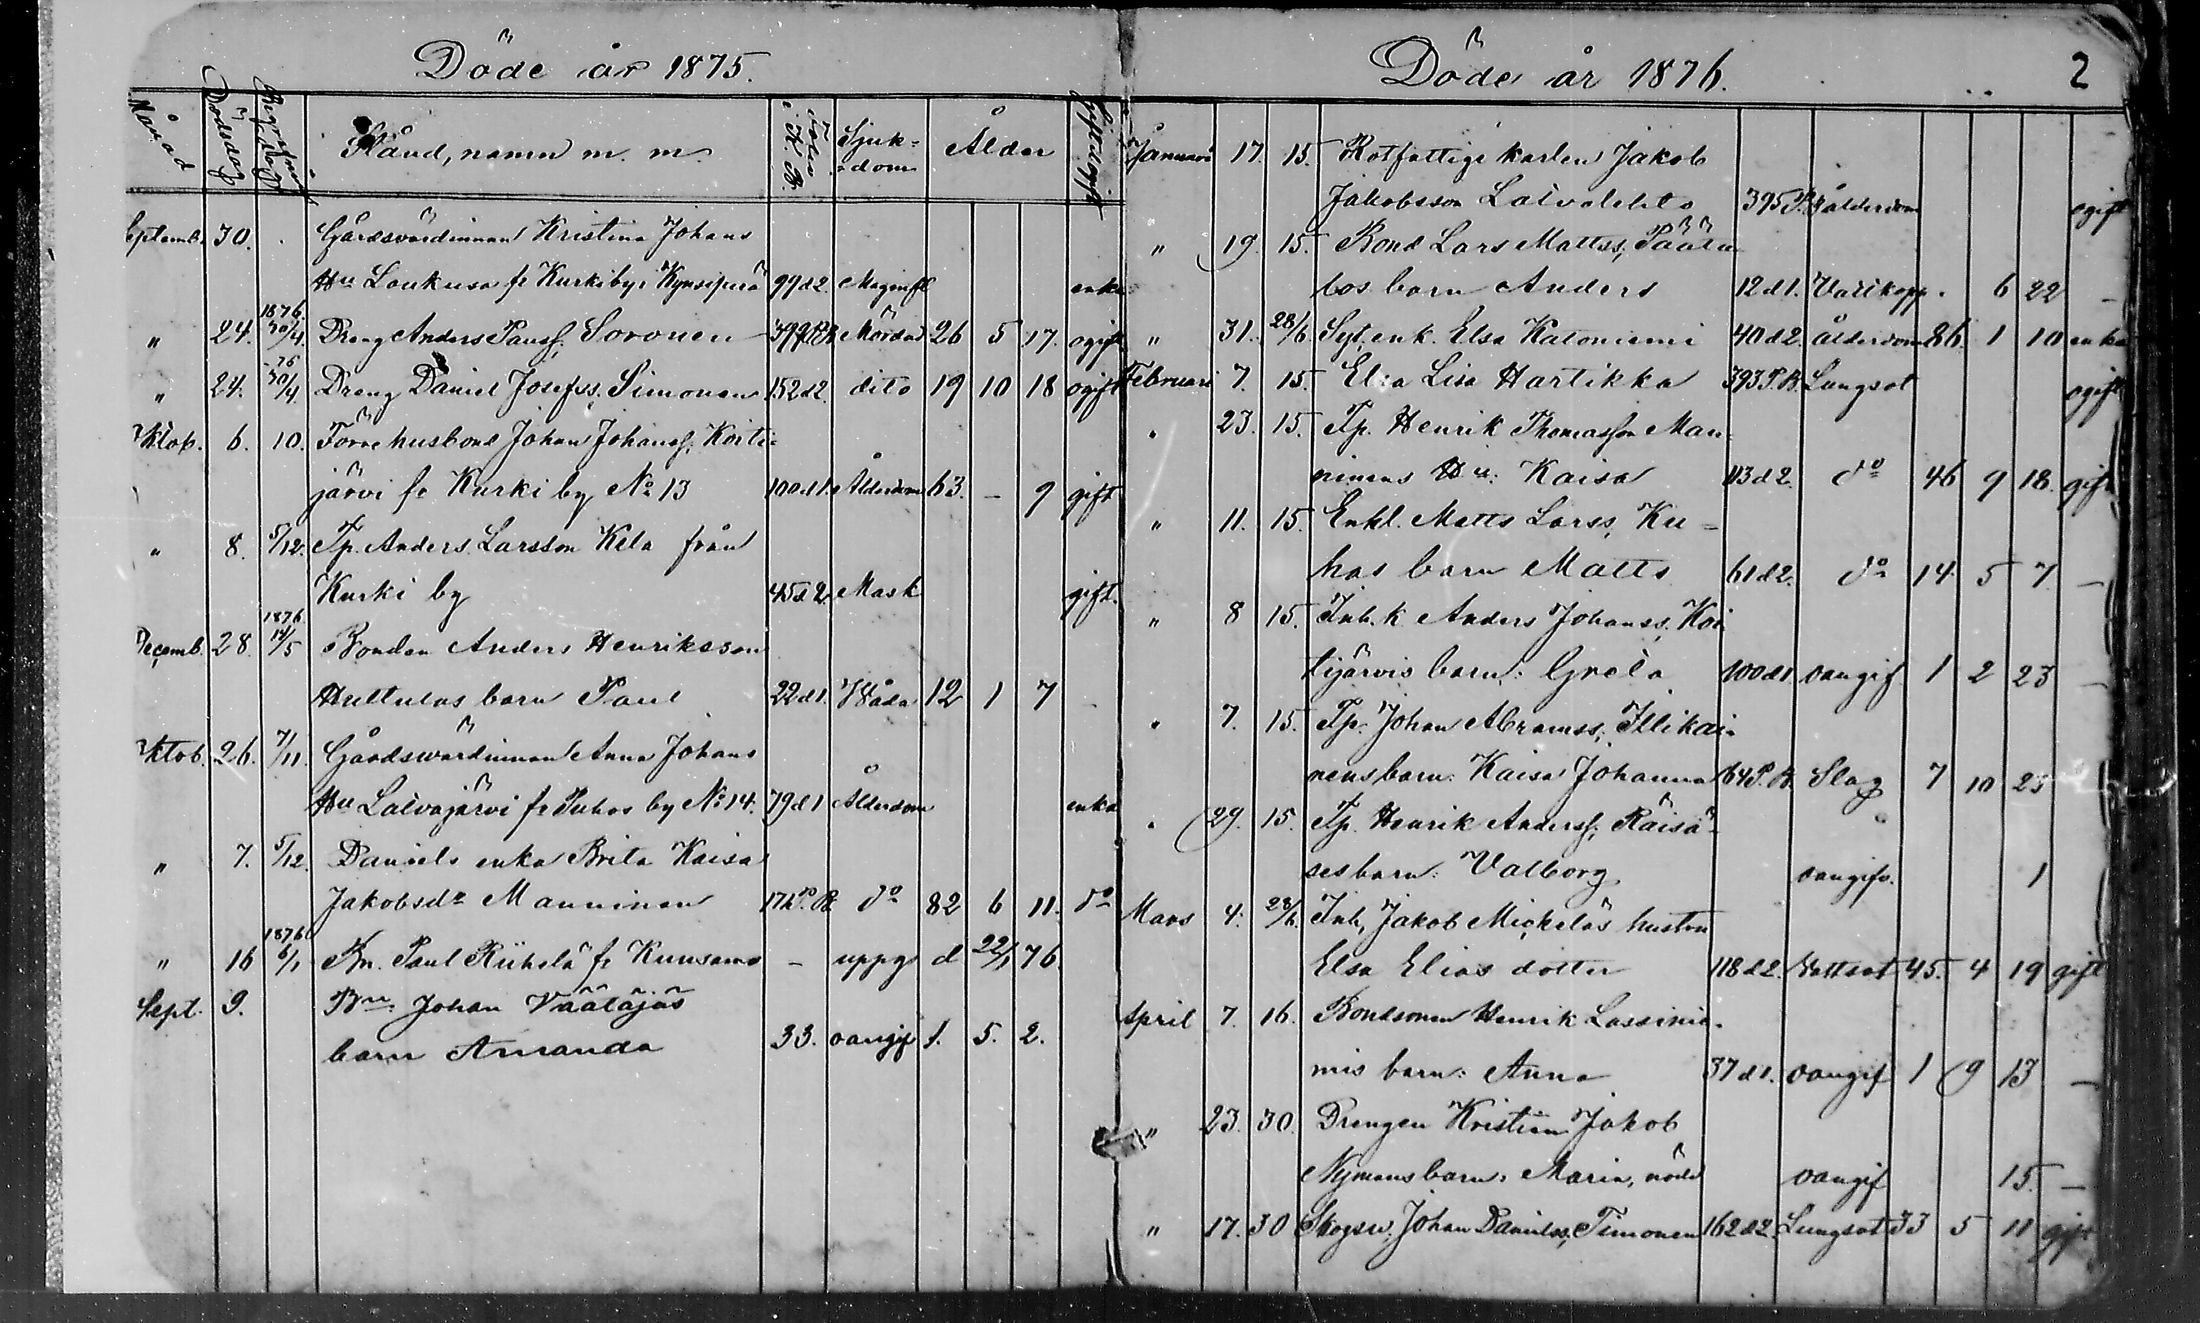 Döde år 1875.
Månad Dödsdag Begrafningsdag Stånd, namn m. m. Folio i K. B. Sjuk-dom Ålder Gift el. ogift
Septemb. 30. Gårdsvärdinnan Kristina Johans
Hu Loukusa fr Kurki by i Kynsiperä 99 d 2. Maginfl enka
" 24. 1876 30/4. Dreng Anders Paulss. Soronen 399 P.B. Mördad 26 5 17. ogift
" 24. -76 30/4. Dreng Daniel Josefss. Simonen 152 d 2. dito 19 10 18 ogift
Oktob. 6. 10. Förre husbond Johan Johanss. Koiti-
järvi fr Kurki by No 13 100 d 1. Ålderdom 63. – 9 gift
" 8. 5/12. Tp. Anders Larsson Kela från
Kurki by 45 d 2. Mask gift.
Decemb. 28. 1876 14/5 Bonden Anders Henriksson
Huttulas barn Paul 22 d 1. Våda 12 1 7 -
Oktob. 26. 7/11. Gårdswärdinnan Anna Johans
Hu Latvajärvi fr Puhos by No 14. 79 d 1 Ålderdom enka
" 7. 5/12. Daniels enka Brita Kaisa
Jakobsdr Manninen P.B. do 82 6 11. do
" 16 1876 6/1 Bn. Paul Riihelä fr Kuusamo – uppg d 22/1 76.
Sept. 9. Bn Johan Väätäjäs
barn Amanda 33. oangif 1. 5. 2.
Döde år 1876. 2
Januari 17. 15. Rotfattige karlen Jakob
Jakobsson Latvalehto 395 P.B. ålderdom ogift
" 19. 15. Bond Lars Mattss. Päät
los barn Anders 12 d 1. Vattkopp. 6 22 –
" 31. 28/6 Syt. enk. Elsa Katoniemi 40 d 2. ålderdom 86. 1 10 enka
Februari 7. 15. Elsa Lisa Hartikka 393 P.B. Lungsot ogift
" 23. 15. Tp. Henrik Thomasson Man-
ninens Hu: Kaisa 113 d 2. do 46 9 18. gift
" 11. 15. Enkl. Matts Larss. Ku-
has barn Matts 61 d 2. do 14 5 7 –
" 8 15. Inh. k Anders Johanss. Koi
tijärvis barn: Greta 100 d 1 oangif 1 2 23 –
" 7. 15. Tp. Johan Abramss. Illikai-
nens barn: Kaisa Johanna 64 P.B. Slag 7 10 23
" 29. 15. Tp. Henrik Anderss. Räisä-
ses barn: Valborg oangifv. 1
Mars 4. 28/6. Inh. Jakob Mickeläs hustru
Elsa Elias dotter 118 d 2. Vattsot 45. 4 19 gift
April 7. 16. Bondsonen Henrik Lassinie-
mis barn: Anna 37 d 1. oangif 1 9 13 –
" 23. 30. Drengen Kristian Jakob
Nymans barn: Maria, nödd oangif 15. –
" 17. 30 Skogsv. Johan Danielss. Timonen 162 d 2. Lungsot 33 5 11 gift